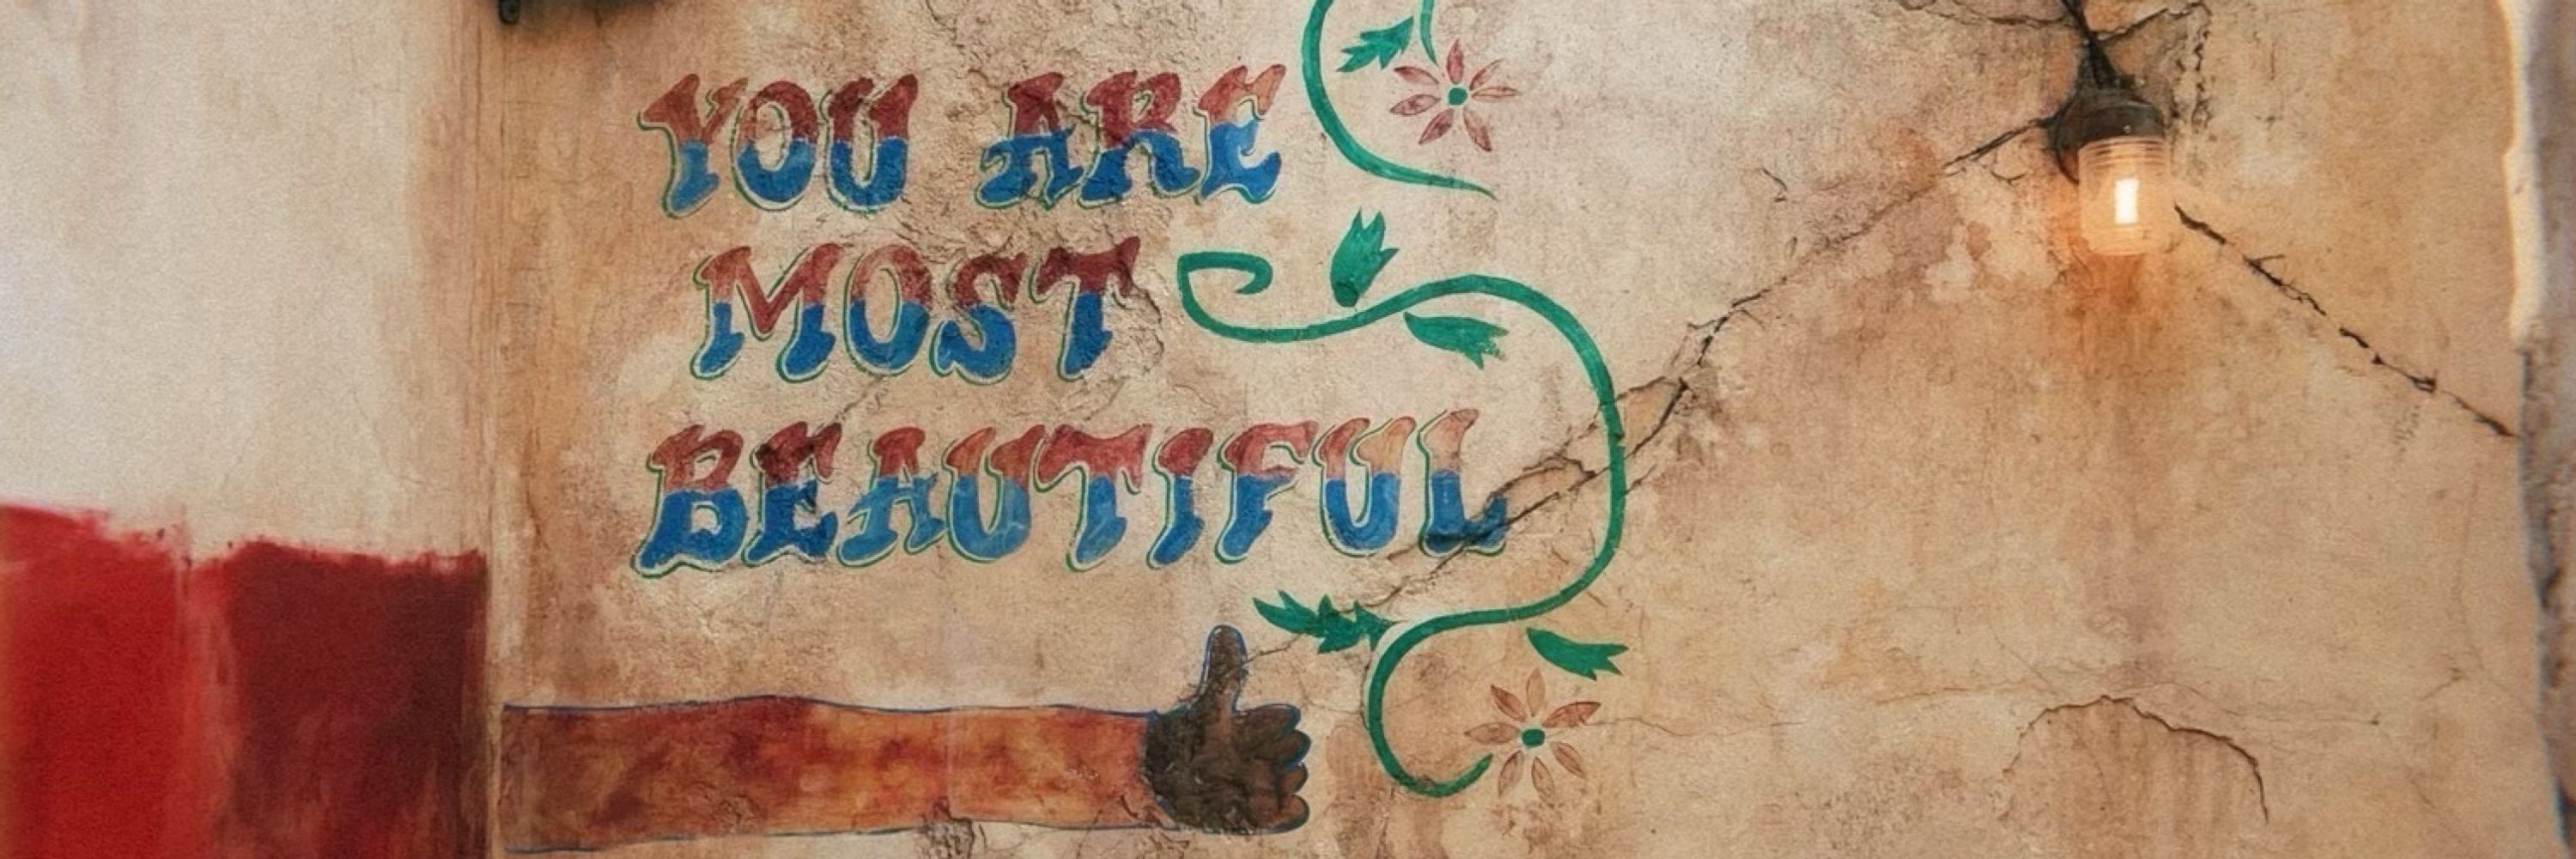 YOU ARE
MOST
BEAUTIFUL